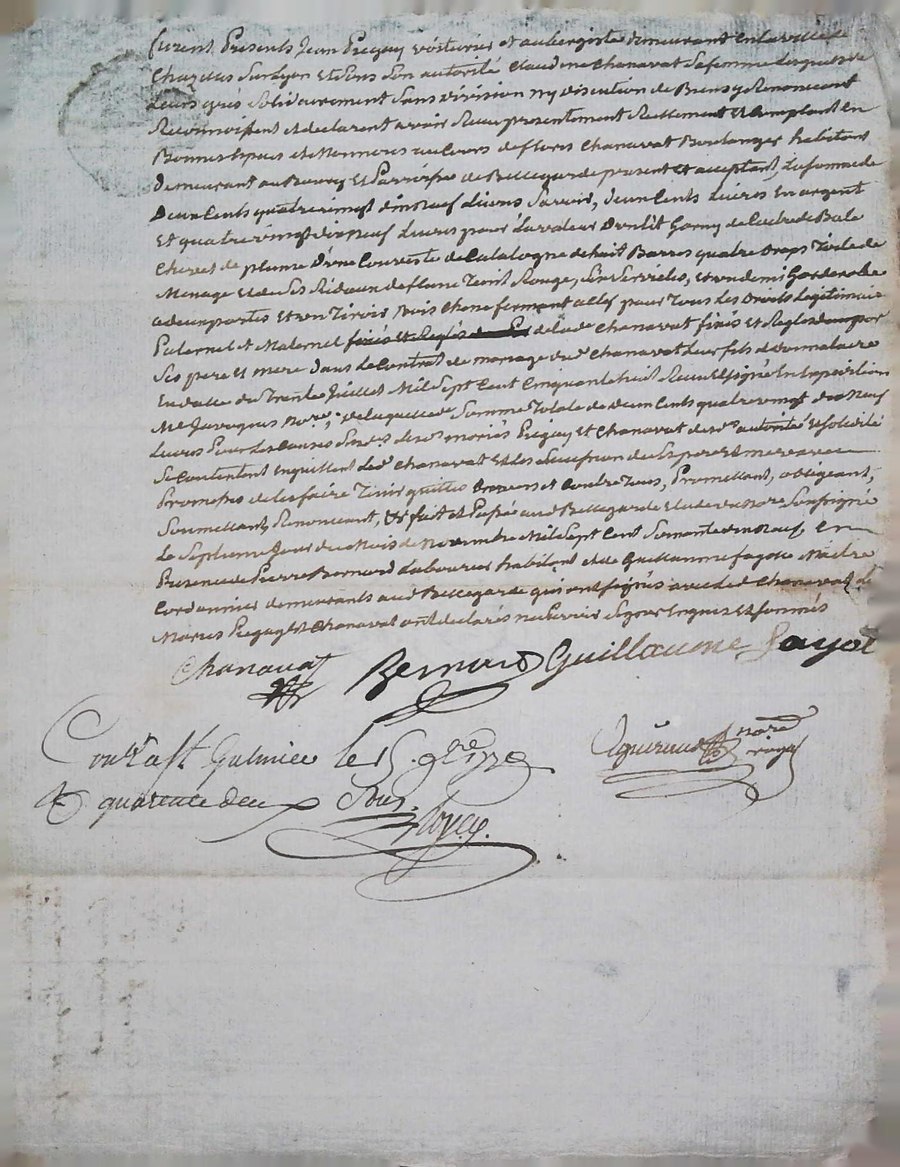 furent Presents Jean Pugay voiturier et aubergiste demeurant en la ville de
Chazelles sur Lyon et sous son autorité Claudine Chanavat sa femme lesquels de
leurs grés solidairement sans division ny discution de Biens y Renoncant
Reconnoissent et declarent avoir Reçu presentement Reellement et Comptant en
Bonnes Especes et Monnoies au Cours de fleuris Chanavat Boulanger habitant
demeurant au Bourg Et Parroisse de Bellegarde present et acceptant, La somme de
Deux Cents quatre vingt dixneuf Livres Savoir, deux Cents Livres En argent
Et quatre vingt dix neuf Livres pour La valeur D'un lit Garny de Cuitre de Bale
Chevet de plume D'une Couverte de Catalogne de huit Barres quatre draps Toile de
Menage Et de Ses Rideaux de flane Teint Rouge, Six Serviettes, Et un demi Garderobe
a deux portes Et un Tiroir Bois Chene fermant a clef pour Tous Les Droits Legitimaires
Paternel et Maternel finis et Reglés de lad. Chanavat finis et Reglés par
Ses pere Et mere dans le Contrat de mariage dud. Chanavat Leur fils et donnataire
En datte du Trente Juillet Mil Sept Cent Cinquante huit Reçu Et signé En Expedition
Me. Javogues nore., de laquelle d. Somme Totale de deux Cents quatre vingt dix Neuf
Livres Pour les Causes Susd. lesd. mariés Pugay Et Chanavat desd. autorité Et solidité
Se Contentent En quittent led. Chanavat Et les Successions de Ses pere Et mere avec
Promesses de les faire Tenir quittes Envers et Contre Tous, Promettant, obligeant,
Soumettant, Renoncant, &c fait et Passé aud. Bellegarde Etude du Nore. Soussigné
Le Septieme Jour du Mois de Novembre Mil Sept Cent Soixante dix Neuf, En
Presence de Pierre Bernard Laboureur habitant et de Guillaume fayolle Maitre
Cordonnier demeurants aud. Bellegarde qui ont signés avec led. Chanavat, les
Mariés Pugay Et Chanavat ont declarés ne Savoir Signer Enquis Et sommés
Chanavat Bernard Guillaume Fayol
nore royal
Conlé a St Galmier le 15. 9bre 1779
R. quarante deux Sous.